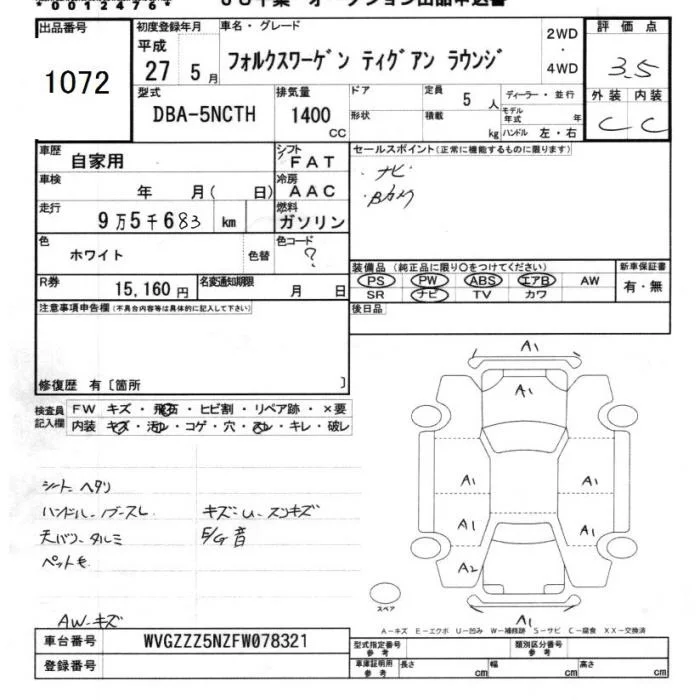 *00124876*
出品番号 初度登録年月 車名・グレード 2WD ・ 4WD 評価点
1072 平成 27 5月 フォルクスワーゲン ティグアン ラウンジ 3.5
型式 排気量 ドア 定員 5人 ディーラー・並行 外装 内装
DBA-5NCTH 1400 CC 形状 積載 kg モデル年式 年 ハンドル 左・右 C C
車歴 自家用 シフト FAT セールスポイント(正常に機能するものに限ります)
車検 年 月( 日) 冷房 AAC ・ナビ
走行 9万5千683 km 燃料 ガソリン ・Bカメ
色 ホワイト 色替 色コード ?
装備品(純正品に限り○をつけてください) 新車保証書
R券 15,160円 名変通知期限 月 日 PS PW ABS エアB AW 有・無
SR ナビ TV カワ
注意事項申告欄(不具合内容等は具体的に記入して下さい) 後日品
修復歴 有〔箇所 〕
検査員記入欄 FW キズ・飛石・ヒビ割・リペア跡・×要
内装 キズ・汚レ・コゲ・穴・スレ・キレ・破レ
A1
A1
A1 A1
A1 A1
A2
A1
シートヘタリ
ハンドル・ノブスレ キズ・U・スリキズ
天バリ・タルミ E/G音
ペット毛
AW-キズ
スペア
A-キズ E-エクボ U-凹み W-補修跡 S-サビ C-腐食 XX-交換済
車台番号 WVGZZZ5NZFW078321 型式指定番号 参考 類別区分番号 参考
登録番号 車庫証明用 参考 長さ cm 幅 cm 高さ cm